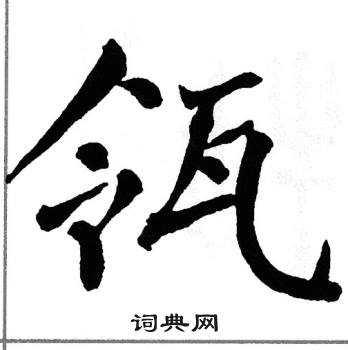 瓴
词典网